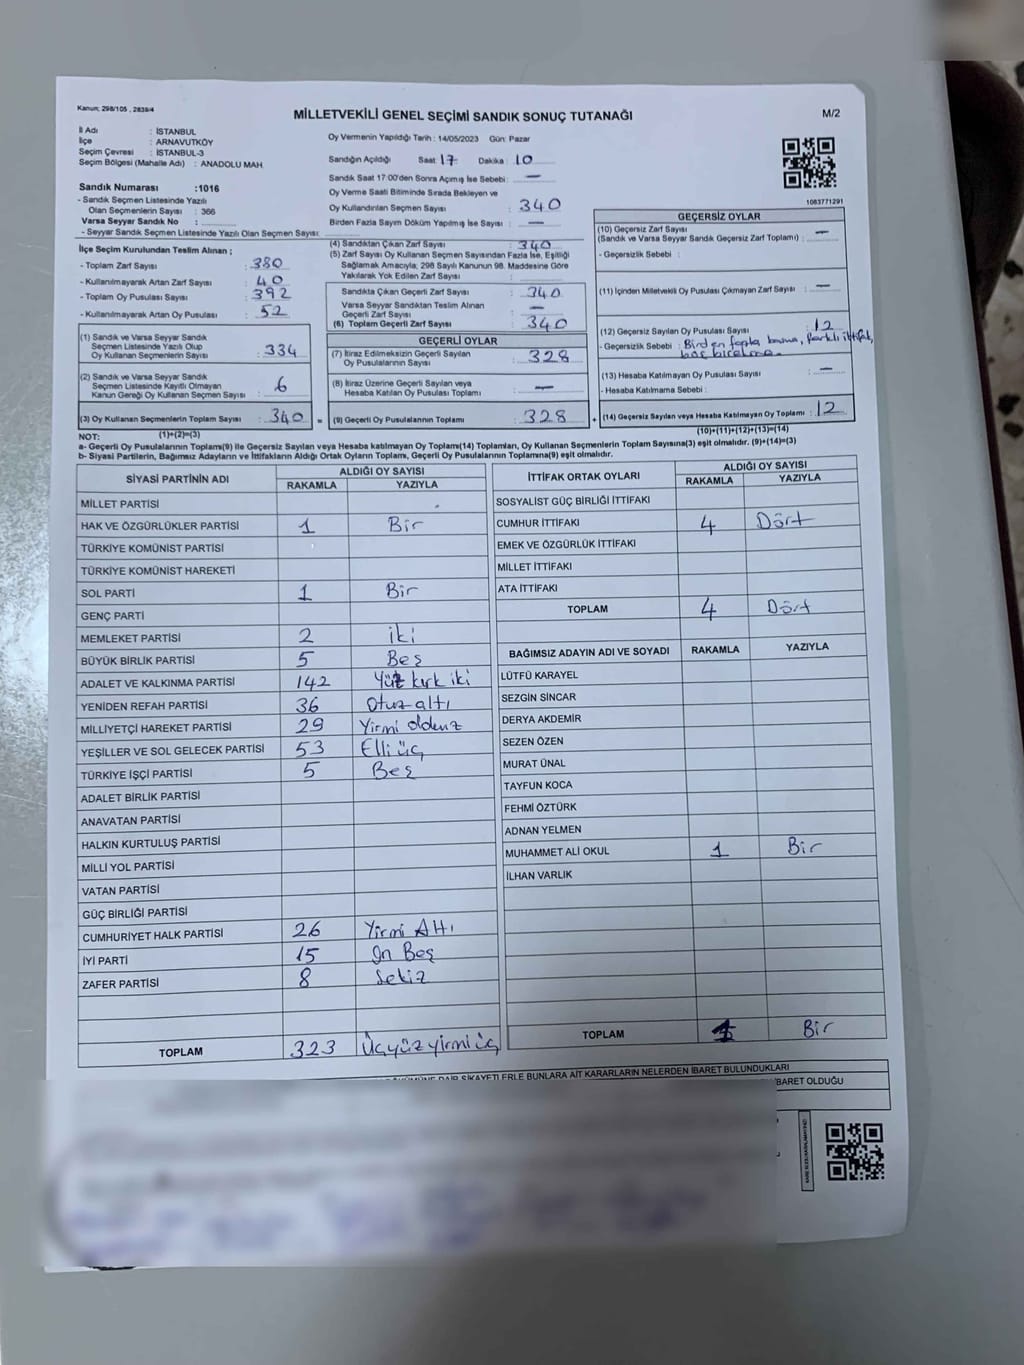 Kanun; 298/105 , 2839/4
MİLLETVEKİLİ GENEL SEÇİMİ SANDIK SONUÇ TUTANAĞI
M/2
İl Adı : İSTANBUL
İlçe : ARNAVUTKÖY
Seçim Çevresi : İSTANBUL-3
Seçim Bölgesi (Mahalle Adı) : ANADOLU MAH.
Sandık Numarası :1016
- Sandık Seçmen Listesinde Yazılı
Olan Seçmenlerin Sayısı : 366
Varsa Seyyar Sandık No :
- Seyyar Sandık Seçmen Listesinde Yazılı Olan Seçmen Sayısı:
İlçe Seçim Kurulundan Teslim Alınan ;
- Toplam Zarf Sayısı : 380
- Kullanılmayarak Artan Zarf Sayısı : 40
- Toplam Oy Pusulası Sayısı : 392
- Kullanılmayarak Artan Oy Pusulası : 52
(1) Sandık ve Varsa Seyyar Sandık
Seçmen Listesinde Yazılı Olup
Oy Kullanan Seçmenlerin Sayısı : 334
(2) Sandık ve Varsa Seyyar Sandık
Seçmen Listesinde Kayıtlı Olmayan
Kanun Gereği Oy Kullanan Seçmen Sayısı : 6
(3) Oy Kullanan Seçmenlerin Toplam Sayısı : 340
Oy Vermenin Yapıldığı Tarih : 14/05/2023 Gün: Pazar
Sandığın Açıldığı Saat 17 Dakika : 10
Sandık Saat 17:00'den Sonra Açımış İse Sebebi : —
Oy Verme Saati Bitiminde Sırada Bekleyen ve
Oy Kullandırılan Seçmen Sayısı : 340
Birden Fazla Sayım Döküm Yapılmış İse Sayısı : —
(4) Sandıktan Çıkan Zarf Sayısı : 340
(5) Zarf Sayısı Oy Kullanan Seçmen Sayısından Fazla İse, Eşitliği
Sağlamak Amacıyla; 298 Sayılı Kanunun 98. Maddesine Göre
Yakılarak Yok Edilen Zarf Sayısı :
Sandıkta Çıkan Geçerli Zarf Sayısı : 340
Varsa Seyyar Sandıktan Teslim Alınan
Geçerli Zarf Sayısı : —
(6) Toplam Geçerli Zarf Sayısı : 340
GEÇERLİ OYLAR
(7) İtiraz Edilmeksizin Geçerli Sayılan
Oy Pusulalarının Sayısı : 328
(8) İtiraz Üzerine Geçerli Sayılan veya
Hesaba Katılan Oy Pusulaları Toplamı : —
= (9) Geçerli Oy Pusulalarının Toplamı : 328 +
1083771291
GEÇERSİZ OYLAR
(10) Geçersiz Zarf Sayısı
(Sandık ve Varsa Seyyar Sandık Geçersiz Zarf Toplamı) : —
- Geçersizlik Sebebi :
(11) İçinden Milletvekili Oy Pusulası Çıkmayan Zarf Sayısı : —
(12) Geçersiz Sayılan Oy Pusulası Sayısı : 12
- Geçersizlik Sebebi : Birden fazla basma, farklı ittifak,
boş bırakma.
(13) Hesaba Katılmayan Oy Pusulası Sayısı : —
- Hesaba Katılmama Sebebi :
(14) Geçersiz Sayılan veya Hesaba Katılmayan Oy Toplamı : 12
NOT: (1)+(2)=(3)
(10)+(11)+(12)+(13)=(14)
a- Geçerli Oy Pusulalarının Toplamı(9) ile Geçersiz Sayılan veya Hesaba Katılmayan Oy Toplamı(14) Toplamları, Oy Kullanan Seçmenlerin Toplam Sayısına(3) eşit olmalıdır. (9)+(14)=(3)
b- Siyasi Partilerin, Bağımsız Adayların ve İttifakların Aldığı Ortak Oyların Toplamı, Geçerli Oy Pusulalarının Toplamına(9) eşit olmalıdır.
SİYASİ PARTİNİN ADI
ALDIĞI OY SAYISI
RAKAMLA YAZIYLA
MİLLET PARTİSİ
HAK VE ÖZGÜRLÜKLER PARTİSİ 1 Bir
TÜRKİYE KOMÜNİST PARTİSİ
TÜRKİYE KOMÜNİST HAREKETİ
SOL PARTİ 1 Bir
GENÇ PARTİ
MEMLEKET PARTİSİ 2 iki
BÜYÜK BİRLİK PARTİSİ 5 Beş
ADALET VE KALKINMA PARTİSİ 142 Yüz kırk iki
YENİDEN REFAH PARTİSİ 36 Otuz altı
MİLLİYETÇİ HAREKET PARTİSİ 29 Yirmi dokuz
YEŞİLLER VE SOL GELECEK PARTİSİ 53 Elli üç
TÜRKİYE İŞÇİ PARTİSİ 5 Beş
ADALET BİRLİK PARTİSİ
ANAVATAN PARTİSİ
HALKIN KURTULUŞ PARTİSİ
MİLLİ YOL PARTİSİ
VATAN PARTİSİ
GÜÇ BİRLİĞİ PARTİSİ
CUMHURİYET HALK PARTİSİ 26 Yirmi Altı
İYİ PARTİ 15 On Beş
ZAFER PARTİSİ 8 Sekiz
TOPLAM 323 Üçyüz yirmi üç
İTTİFAK ORTAK OYLARI
ALDIĞI OY SAYISI
RAKAMLA YAZIYLA
SOSYALİST GÜÇ BİRLİĞİ İTTİFAKI
CUMHUR İTTİFAKI 4 Dört
EMEK VE ÖZGÜRLÜK İTTİFAKI
MİLLET İTTİFAKI
ATA İTTİFAKI
TOPLAM 4 Dört
BAĞIMSIZ ADAYIN ADI VE SOYADI RAKAMLA YAZIYLA
LÜTFÜ KARAYEL
SEZGİN SİNCAR
DERYA AKDEMİR
SEZEN ÖZEN
MURAT ÜNAL
TAYFUN KOCA
FEHMİ ÖZTÜRK
ADNAN YELMEN
MUHAMMET ALİ OKUL 1 Bir
İLHAN VARLIK
TOPLAM 1 Bir
DAİR ŞİKAYETLERLE BUNLARA AİT KARARLARIN NELERDEN İBARET BULUNDUKLARI
İBARET OLDUĞU